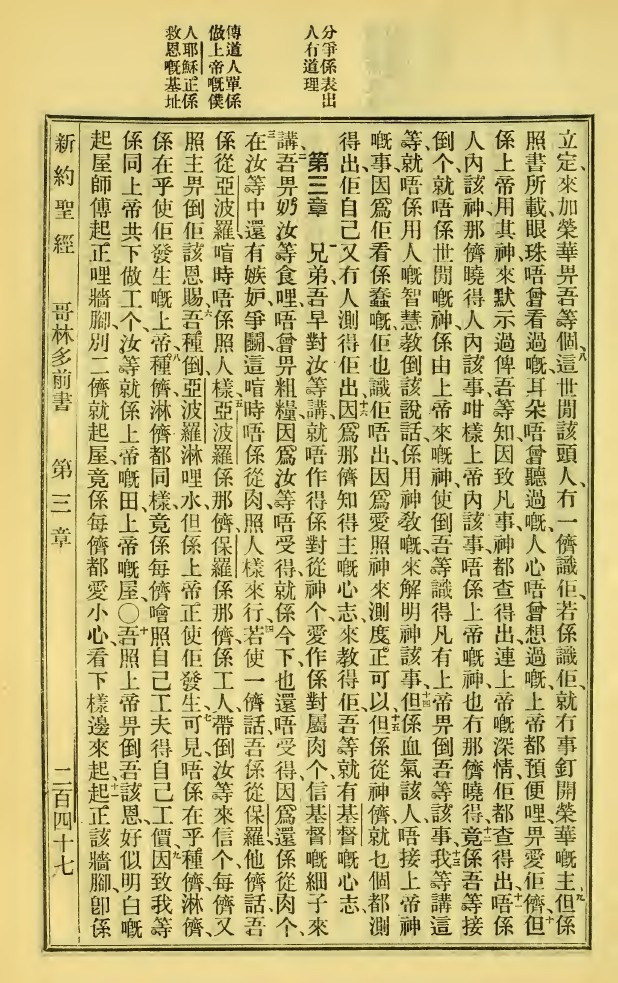 分爭係表出
人冇道理
傳道人單係
做上帝嘅僕
人耶穌正係
救恩嘅基址
立定來加榮華畀吾等個、八這世間該頭人、冇一儕識佢、若係識佢、就冇事釘開榮華嘅主、九但係
照書所載、眼珠唔曾看過嘅、耳朶唔曾聽過嘅、人心唔曾想過嘅、上帝都預便哩畀愛佢儕、十但
係上帝用其神來默示過俾吾等知、因致凡事、神都查得出、連上帝嘅深情佢都查得出、十一唔係
人內該神、那儕曉得人內該事、咁樣上帝內該事、唔係上帝嘅神、也冇那儕曉得、十二竟係吾等接
倒个、就唔係世間嘅神、係由上帝來嘅神、使倒吾等識得凡有上帝畀倒吾等該事、十三我等講這
等、就唔係用人嘅智慧教倒該說話、係用神教嘅、來解明神該事、十四但係血氣該人、唔接上帝神
嘅事、因爲佢看係蠢嘅、佢也識佢唔出、因爲愛照神來測度正可以、十五但係從神儕、就乜個都測
得出、佢自己又冇人測得佢出、十六因爲那儕知得主嘅心志、來教得佢、吾等就有基督嘅心志、
第三章 一兄弟、吾早對汝等講、就唔作得係對從神个、愛作係對屬肉个、信基督嘅細子來
講、二吾畀奶汝等食哩、唔曾畀粗糧、因爲汝等唔受得、就係今下也還唔受得、因爲還係從肉个、
三在汝等中還有嫉妒爭鬭、這喑時唔係從肉、照人樣來行、四若使一儕話、吾係從保羅、他儕話、吾
係從亞波羅、喑時唔係照人樣、五亞波羅係那儕、保羅係那儕、係工人帶倒汝等來信个、每儕又
照主畀倒佢該恩賜、六吾種倒、亞波羅淋哩水、但係上帝正使佢發生、七可見唔係在乎種儕淋儕、
係在乎使佢發生嘅上帝、八種儕淋儕都同樣、竟係每儕噲照自己工夫得自己工價、九因致我等
係同上帝共下做工个、汝等就係上帝嘅田、上帝嘅屋、〇十吾照上帝畀倒吾該恩、好似明白嘅
起屋師傅、起正哩牆腳、別二儕就起屋、竟係每儕都愛小心、看下樣邊來起、十一起正該牆腳、卽係
新約聖經 哥林多前書 第三章 二百四十七